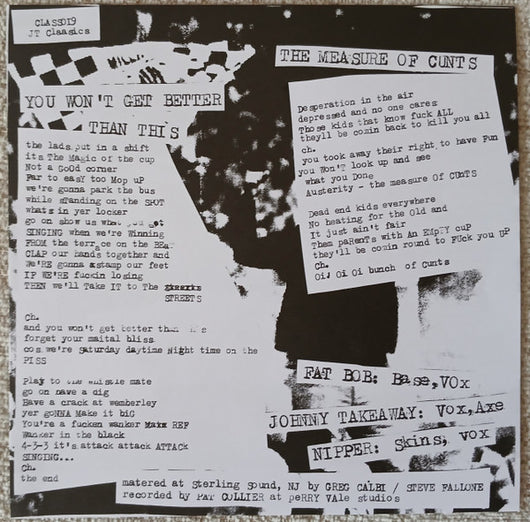 CLASS019
JT Claasics
YOU WON'T GET BETTER
THAN THIS
the lads put in a shift
its The Magic of the cup
Not a GoOd corner
Far to easY too Mop uP
we're gonna park the bus
while sTanding on the SPOT
whats in yer locker
go on show us what you got
SINGING when we're Winning
FROM the terrace on the BEAT
CLAP our hands together and
We'RE gonna sstamp our feet
IF WE'RE fuckin losing
THEN we'll Take IT to The
STREETS
Ch.
and you won't get better than
forget your maital bliss
cos we're saturday daytime Night time on the
PISS
Play to the whistle mate
go on have a dig
Have a crack at wemberley
yer goNNA Make it biG
You're a fucken wanker REF
Wanker in the black
4-3-3 it's attack attack ATTACK
SINGING...
Ch.
the end
THE MEASURE OF CUNTS
Desperation in the air
depressed and no one cares
Those kids that know fuck ALL
theyll be comin back to kill you all
ch.
you took away their right to have Fun
you Won't look up and see
what you Done
Austerity - the measure Of CUntS
Dead end kids everywhere
No heating for the Old end
It just ain't fair
Them paReNts with An EmpTy cup
they'll be comin round to FUck you UP
Ch.
Oi Oi Oi bunch of Cunts
FAT BOB: Base, VOx
JOHNNY TAKEAWAY: Vox, Axe
NIPPER: Skins, vox
matered at Sterling Sound, NJ by GREG CALBI / STEVE FALLONE
recorded by PAT COLLIER at pERRY VALe studios